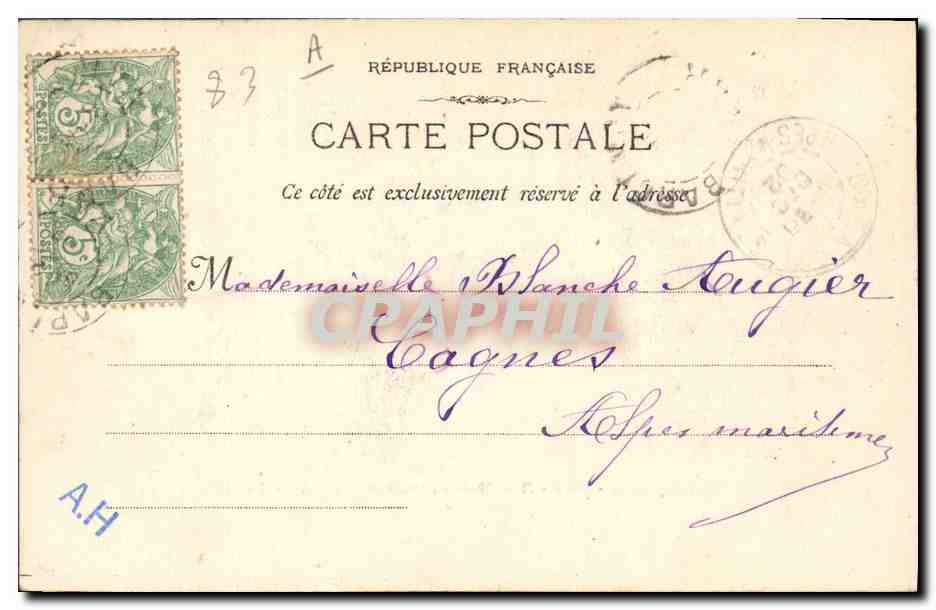 A
83
RÉPUBLIQUE FRANÇAISE
CARTE POSTALE
Ce côté est exclusivement réservé à l'adresse
5c
POSTES
5c
POSTES
BAR
Mademoiselle Blanche Augier
CPARHIL
Cagnes
Alpes maritimes
A.H